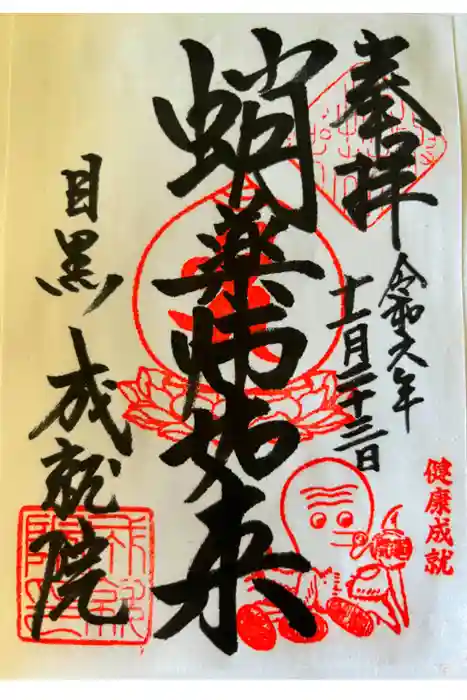 奉拝
令和六年
十一月二十三日
蛸薬師如来
目黒 成就院
健康成就
開運